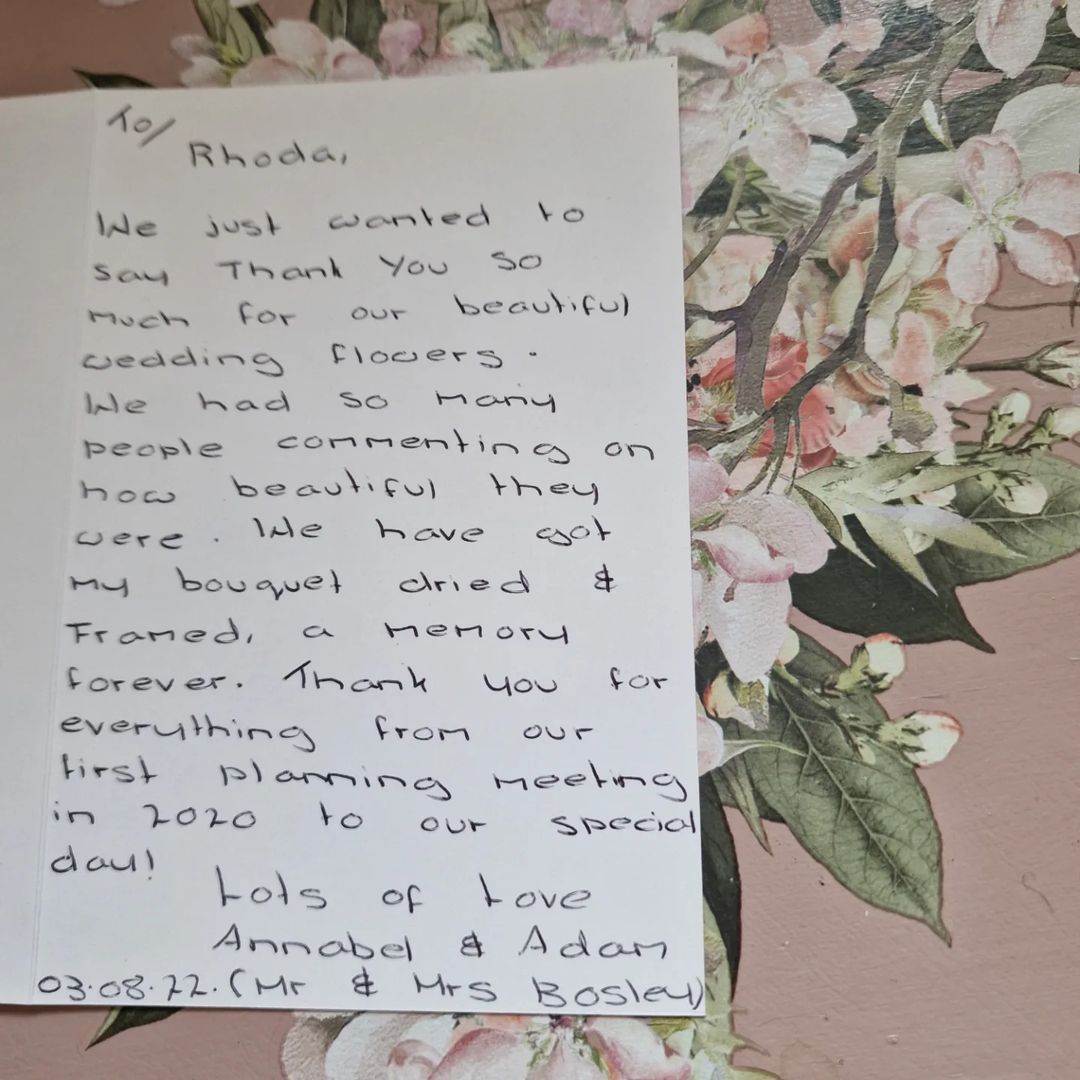 To/
Rhoda,
We just wanted to
say Thank You so
much for our beautiful
wedding flowers.
We had so many
people commenting on
how beautiful they
were. We have got
my bouquet dried &
Framed, a memory
forever. Thank you for
everything from our
first planning meeting
in 2020 to our special
day!
Lots of Love
Annabel & Adam
03.08.22. (Mr & Mrs Bosley)